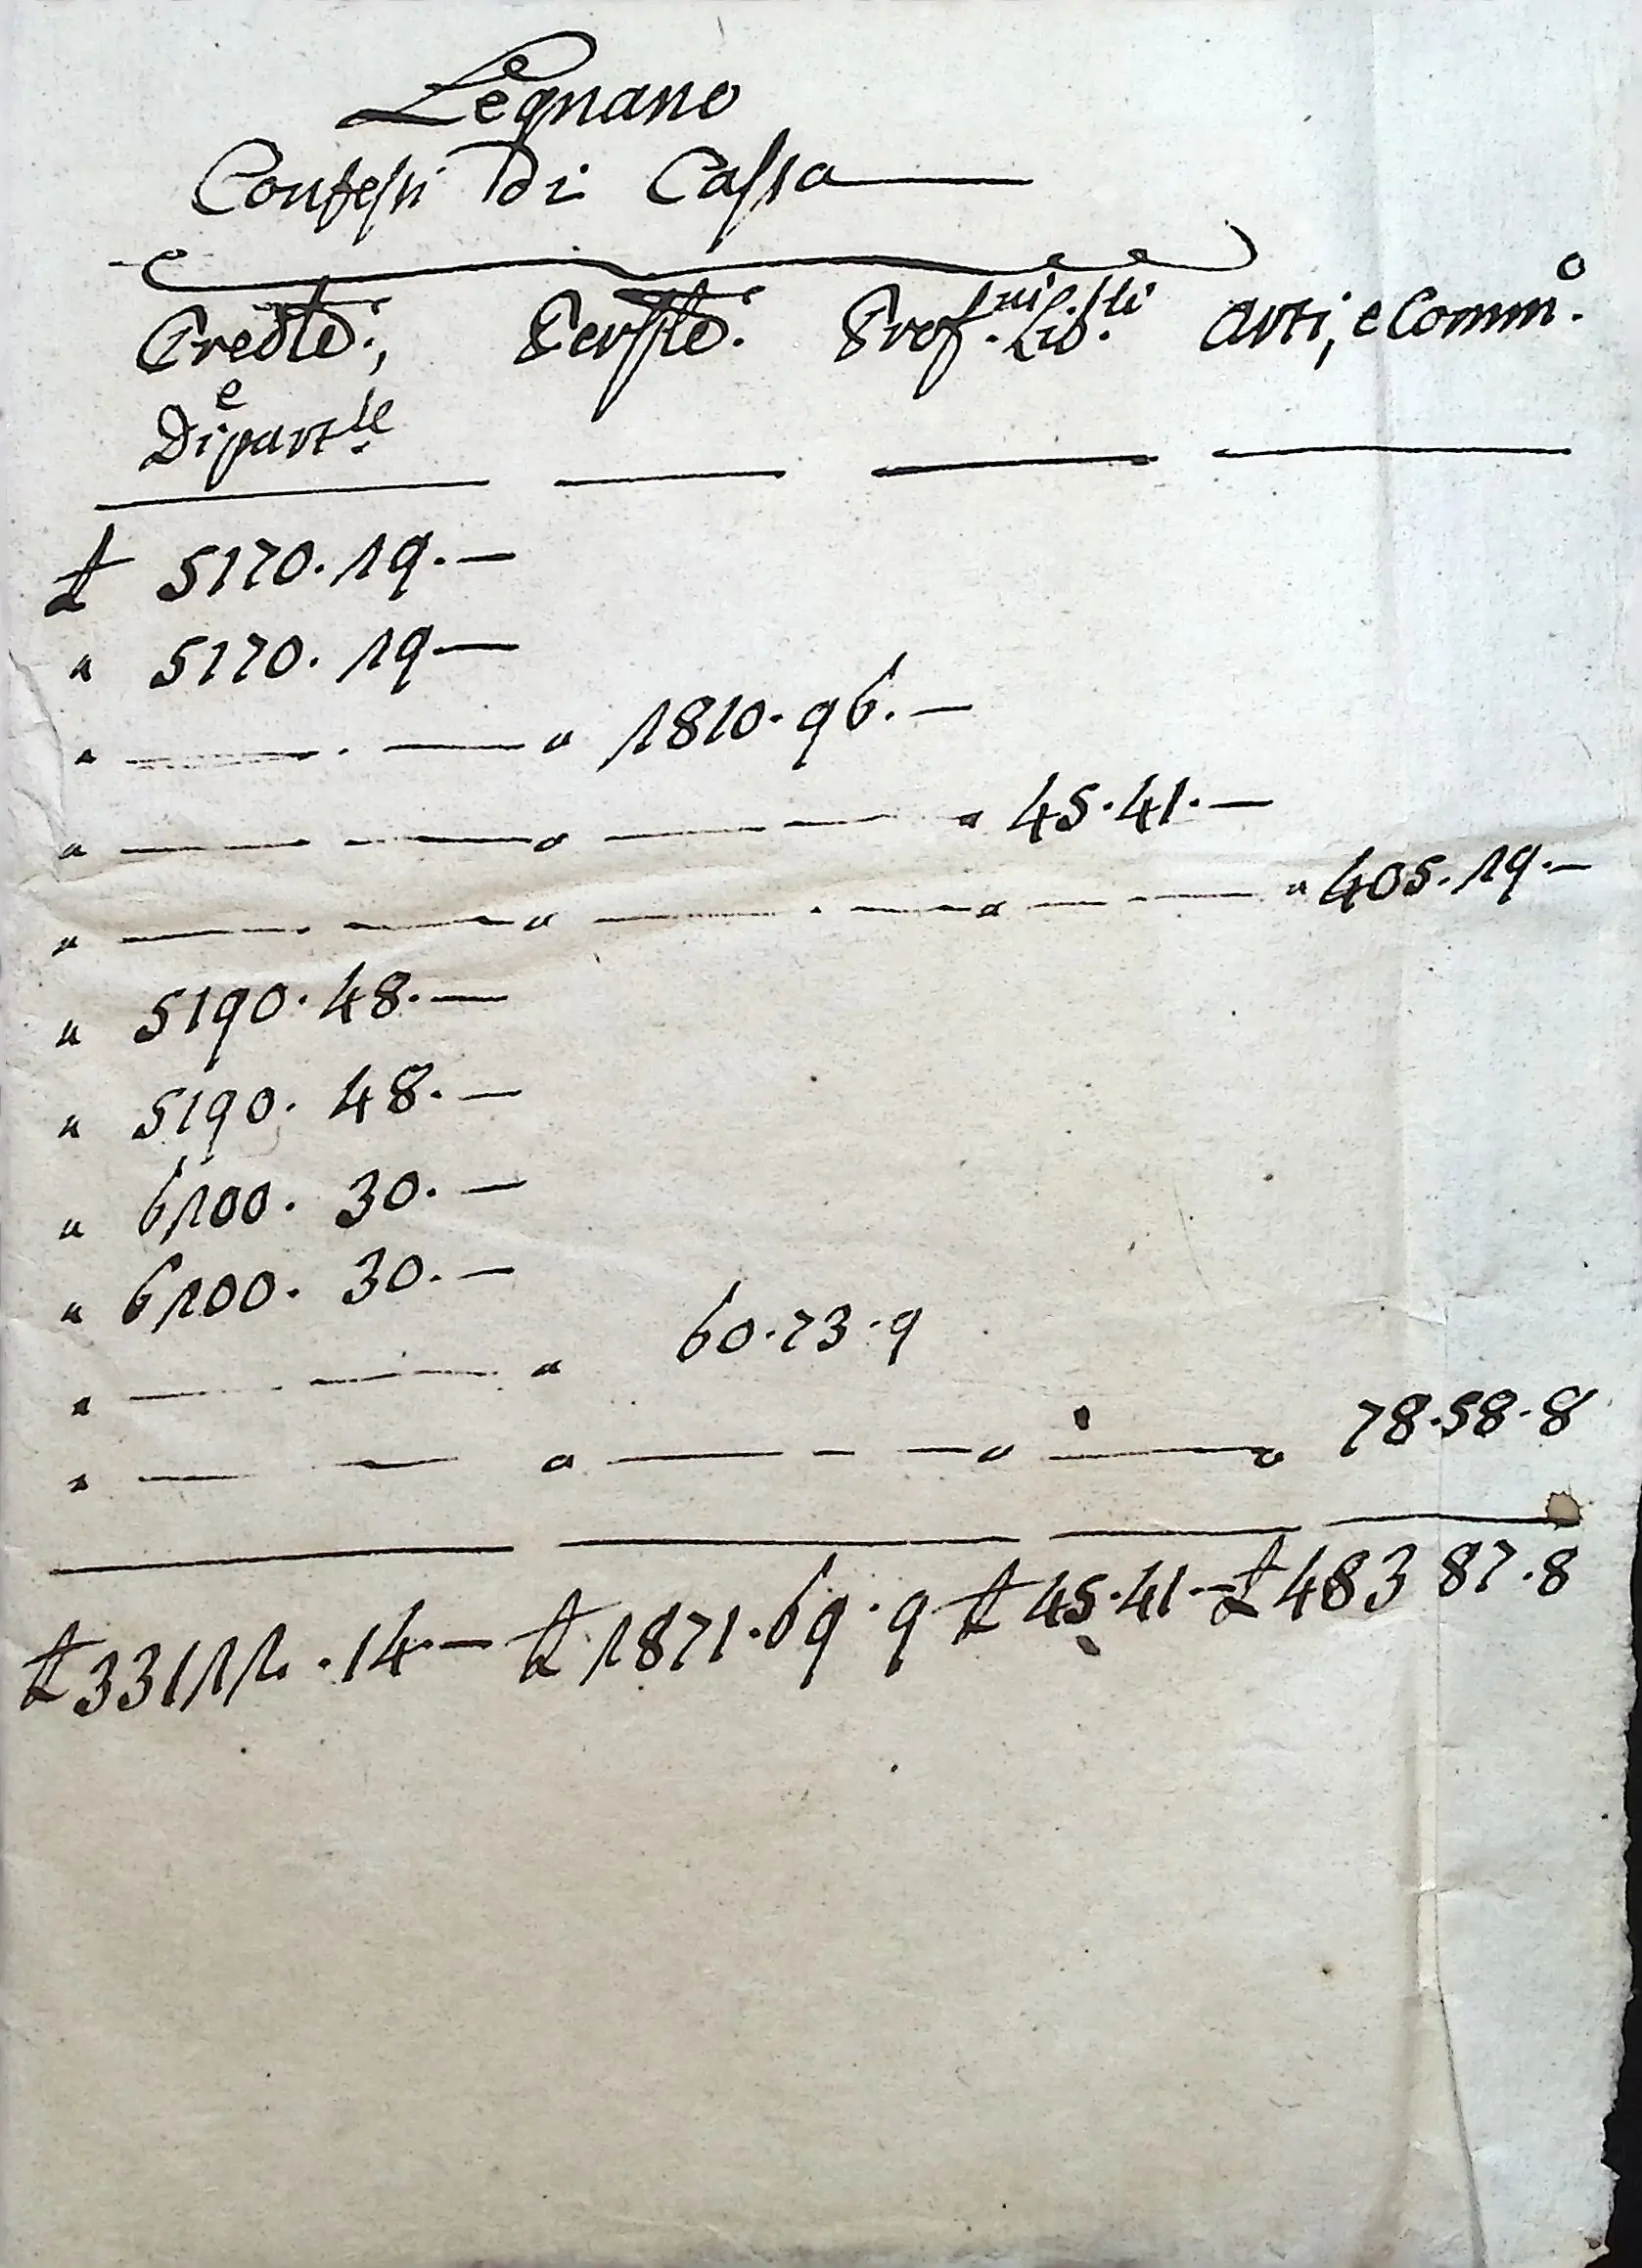 Legnano
Confessi Di Cassa
Predle., Persle. Prof.ni Lib.li Arti, e Comm.o
e
Dipart.le
£ 5170.29.—
" 5170.29—
" — . — " 1810.96.—
" — — " — — " 45.41.—
" — . — " — . — " — — " 405.29.—
" 5190.48.—
" 5190.48.—
" 6200.30.—
" 6200.30.—
" — . — " 60.73.9
" — — " — — — " — " 78.58.8
£ 33122.14.— £ 1871.69.9 £ 45.41.— £ 483 87.8